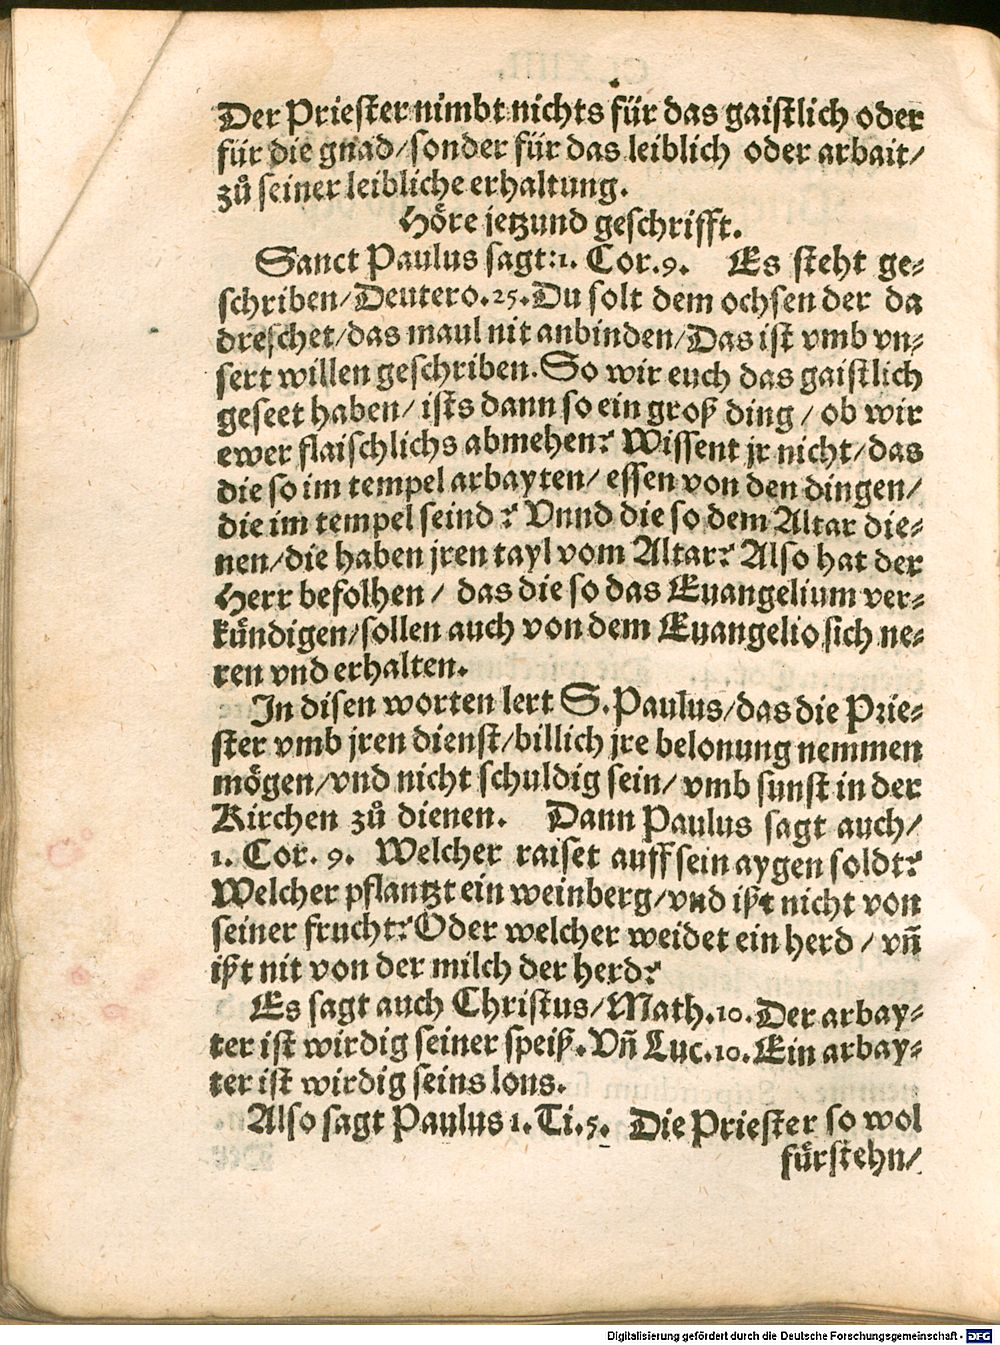 Der Priester nimbt nichts für das gaistlich oder
für die gnad/sonder für das leiblich oder arbait/
zů seiner leibliche erhaltung.
Höre jetzund geschrifft.
Sanct Paulus sagt:1. Cor.9. Es steht ge⸗
schriben/Deutero.25.Du solt dem ochsen der da
dreschet/das maul nit anbinden/Das ist vmb vn⸗
sert willen geschriben.So wir euch das gaistlich
geseet haben/ ists dann so ein groß ding/ ob wir
ewer flaischlichs abmehen? Wissent jr nicht/das
die so im tempel arbayten/ essen von den dingen/
die im tempel seind? Vnnd die so dem Altar die⸗
nen/die haben jren tayl vom Altar? Also hat der
Herr befolhen/ das die so das Euangelium ver⸗
kündigen/sollen auch von dem Euangelio sich ne⸗
ren vnd erhalten.
In disen worten lert S.Paulus/das die Prie⸗
ster vmb jren dienst/billich jre belonung nemmen
mögen/vnd nicht schuldig sein/ vmb sunst in der
Kirchen zů dienen. Dann Paulus sagt auch/
1. Cor. 9. Welcher raiset auff sein aygen soldt?
Welcher pflantzt ein weinberg/vnd ißt nicht von
seiner frucht? Oder welcher weidet ein herd/ vñ
ißt nit von der milch der herd?
Es sagt auch Christus/Math.10.Der arbay⸗
ter ist wirdig seiner speiß.Vñ Luc.10.Ein arbay⸗
ter ist wirdig seins lons.
Also sagt Paulus 1. Ti.5. Die Priester so wol
fürstehn/
Digitalisierung gefördert durch die Deutsche Forschungsgemeinschaft - DFG